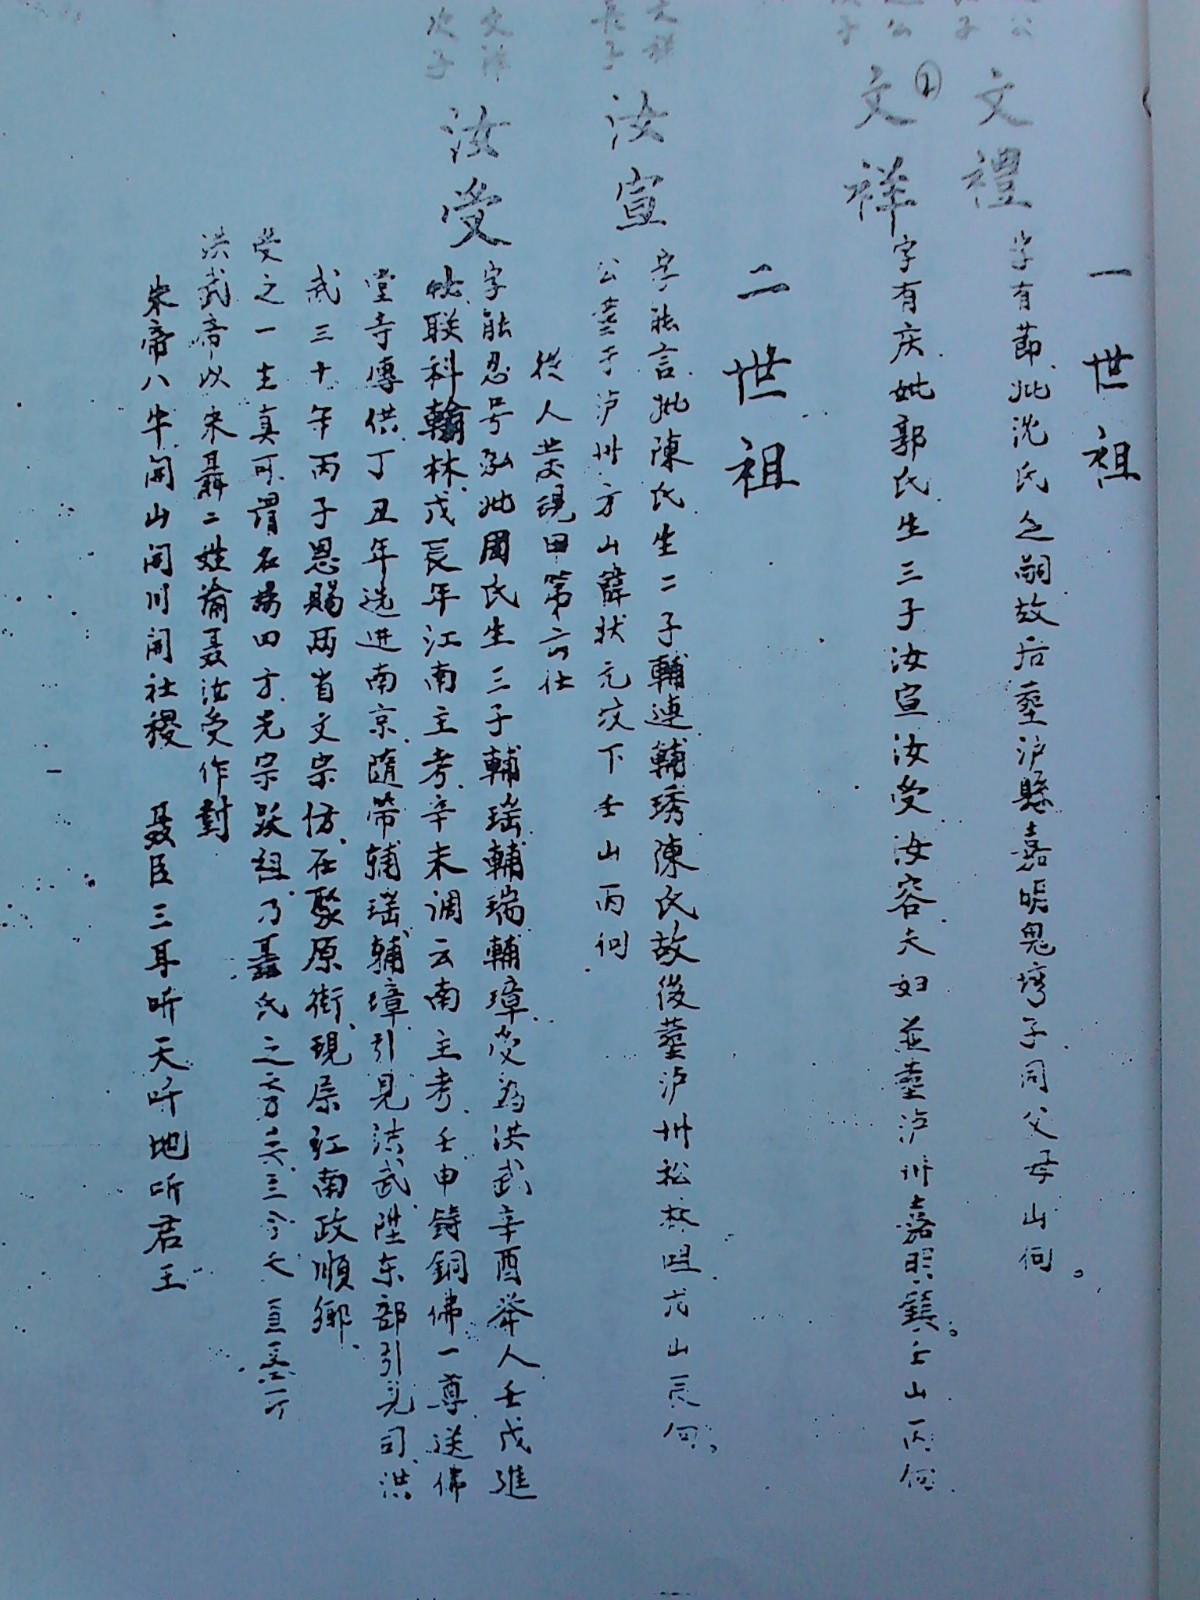 一世祖
文禮
字有節妣沈氏乏嗣故后塟沪縣嘉明鬼塆子同父母山向。
①文祥
字有庆妣郭氏生三子汝宣汝受汝容夫妇並塟泸州嘉明鎮。壬山丙向
二世祖
文祥長子
汝宣
字能言妣陳氏生二子輔連輔琇陳氏故後塟泸州松林咀戌山辰向。
公塟于泸州方山韓状元坟下壬山丙向
從人丛現田第六社
次子
汝受
字能忍号弘妣國氏生三子輔瑶輔瑞輔璋受為洪武辛酉举人壬戌進
妣联科翰林戊辰年江南主考辛未调云南主考壬申铸銅佛一尊送佛
堂寺傳供丁丑年选进南京隨带辅瑶辅璋引見洪武陞东部引見司洪
武三十年丙子恩賜两省文宗仿在聚原街現居江南政順鄉
受之一生真可谓名揚四方光宗跃祖乃聶氏之
洪武帝以宋聶二姓諭聂汝受作對
宋帝八牛開山開川開社稷 聂臣三耳听天听地听君王